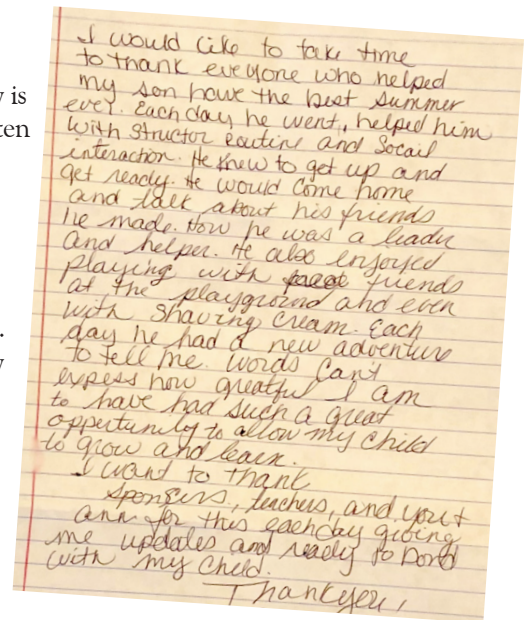 y is
ten
.
y
I would like to take time
to thank everyone who helped
my son have the best summer
ever. Each day he went, helped him
with structor routine and Socail
interaction. He knew to get up and
get ready. He would come home
and talk about his friends
he made. How he was a leader
and helper. He also enjoyed
playing with friends
at the playground and even
with shaving cream. Each
day he had a new adventure
to tell me. Words can't
expess how greatful I am
to have had such a great
oppertunity to allow my child
to grow and learn.
I want to thank
sponsers, teachers, and
ann for this eachday giving
me updates and ready to bond
with my child.
Thankyou,